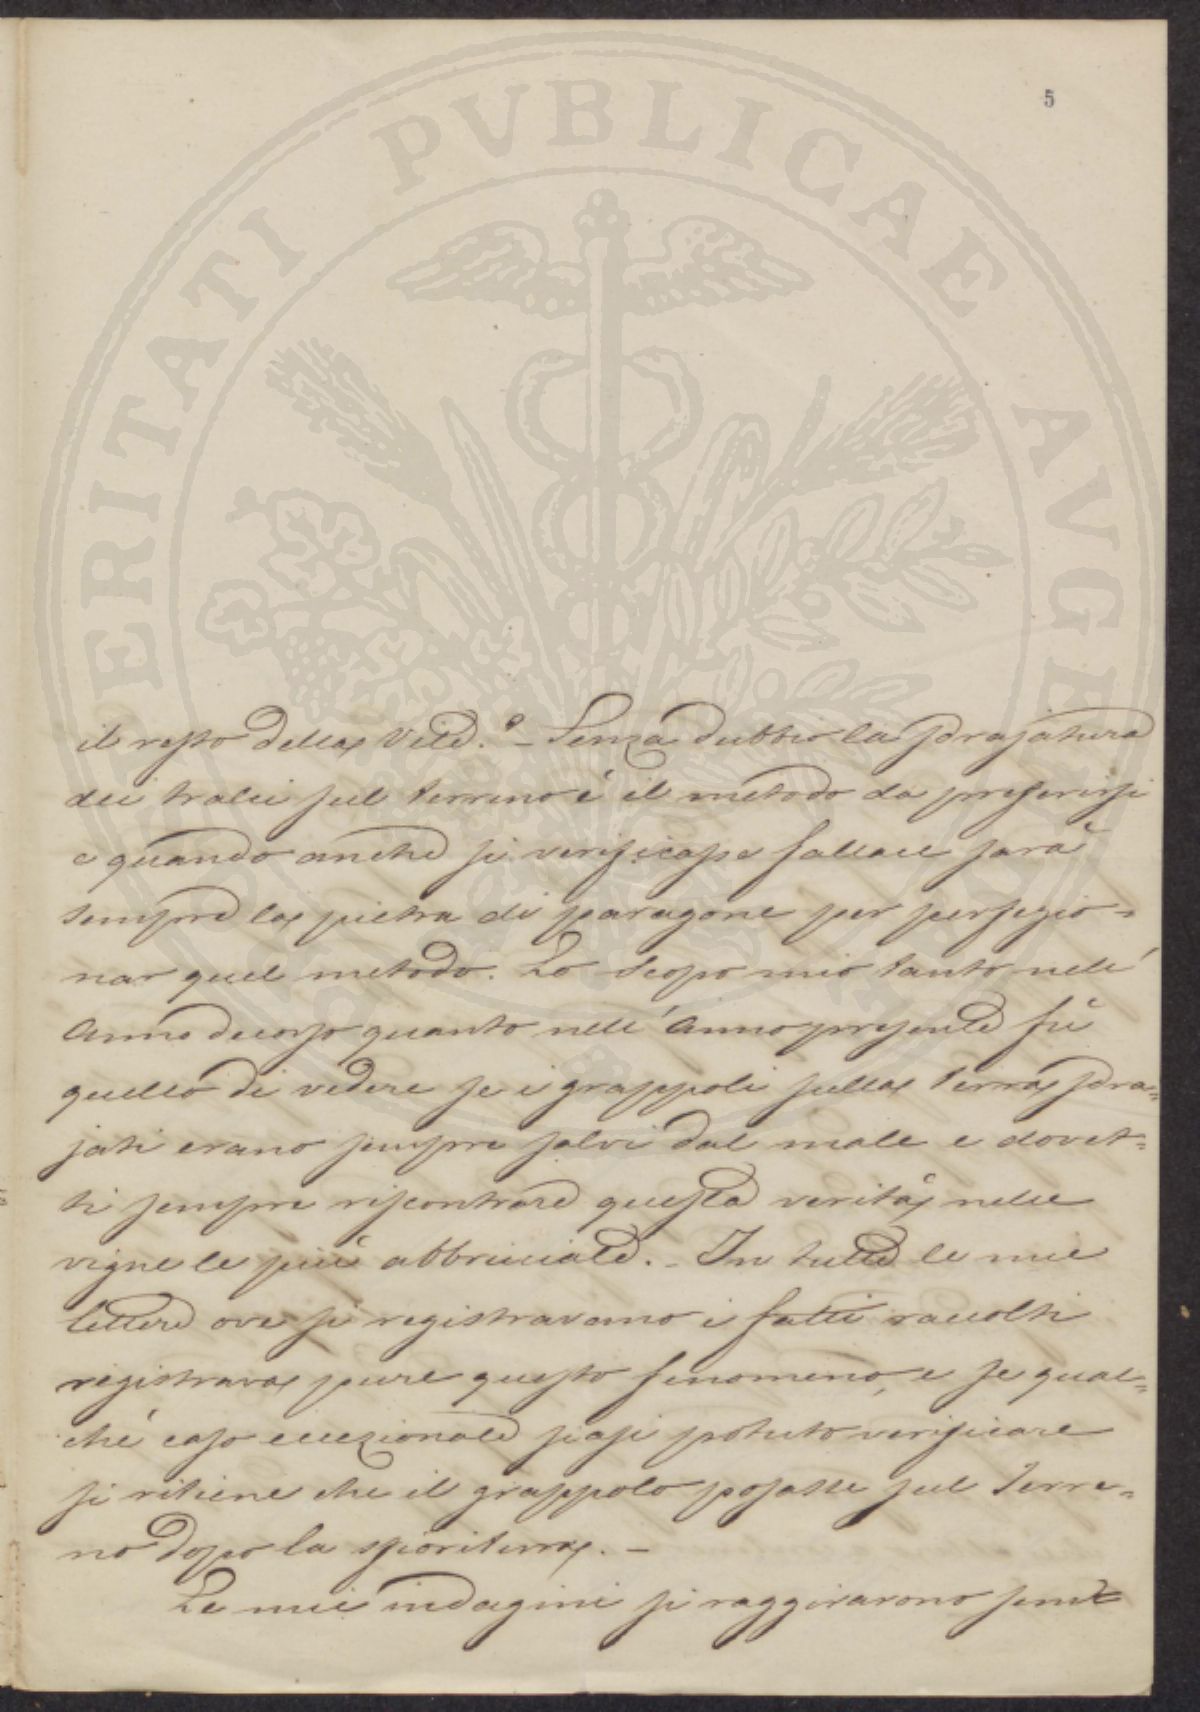 5
PROSPERITATI PVBLICAE AVGENDAE
il resto della Vite.° – Senza dubbio la sdrajatura
dei tralci sul terreno è il metodo da preferirsi
e quando anche si verificasse fallace sarà
sempre la pietra di paragone per perfezio=
nar quel metodo. Lo scopo mio tanto nell'
Anno decorso quanto nell'Anno presente fù
quello di vedere se i grappoli sulla terra sdra=
jati erano sempre salvi dal male e dovet=
ti sempre riscontrare questa verità nelle
vigne le più abbruciate. – In tutte le mie
lettere ove si registravano i fatti raccolti
registrava pure questo fenomeno, e se qual=
ché caso eccezionale siasi potuto verificare
si ritiene che il grappolo posasse sul Terre=
no dopo la fioritura. –
Le mie indagini si raggirarono